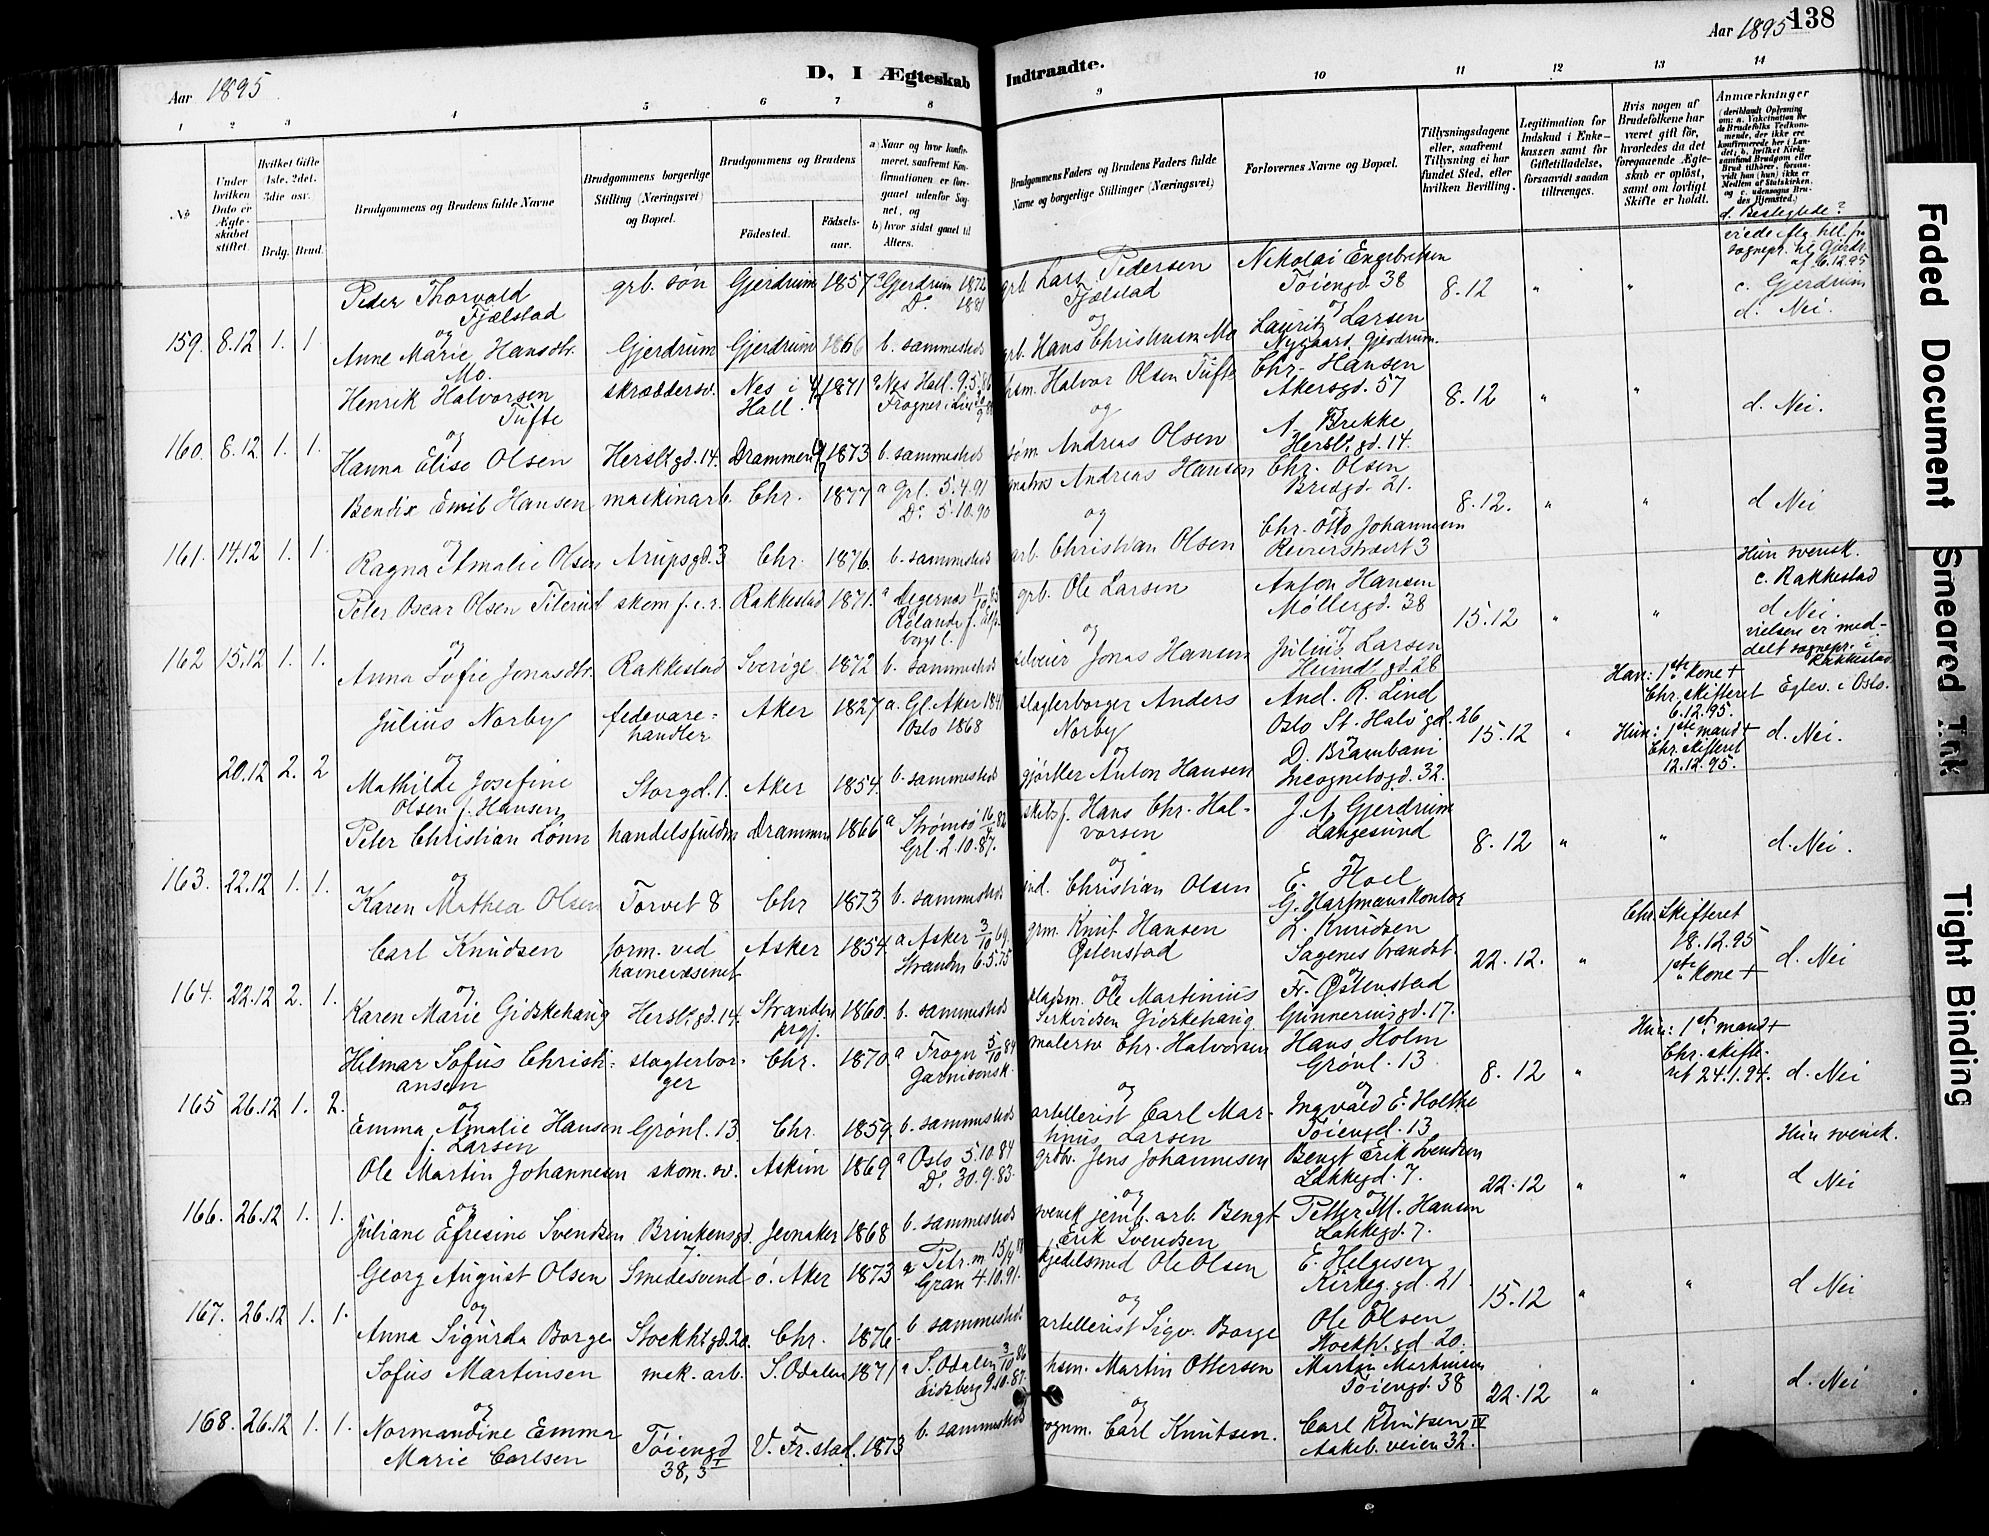 138
Aar 1895
Aar 1895
D, I Ægteskab Indtraadte.
1 2 3 4 5 6 7 8 9 10 11 12 13 14
No
Under hvilken Dato er Ægteskabet stiftet.
Hvilket Gifte 1ste, 2det, 3die osv.
Brdg. Brud.
Brudgommens og Brudens fulde Navne
Brudgommens borgerlige Stilling (Næringsvei) og Bopæl.
Brudgommens og Brudens
Födested.
Födselsaar.
a) Naar og hvor konfirmeret, saafremt Konfirmationen er foregaaet udenfor Sognet, og
b) hvor sidst gaaet til Alters.
Brudgommens Faders og Brudens Faders fulde Navne og borgerlige Stillinger (Næringsvei)
Forlovernes Navne og Bopæl.
Tillysningsdagene eller, saafremt Tillysning ei har fundet Sted, efter hvilken Bevilling.
Legitimation for Indskud i Enkekassen samt for Giftetilladelse, forsaavidt saadan tiltrænges.
Hvis nogen af Brudefolkene har været gift för, hvorledes da det foregaaende Ægteskab er oplöst, samt om lovligt Skifte er holdt.
Anmærkninger
d. Beslegtede?
159. 8.12 1. 1
Peder Thorvald Fjælstad grb. søn Gjerdrum 1857 a Gjerdrum 1872 Do 1881 grb. Lars Pedersen Fjælstad Nikolai Engebretsen Töiengd. 38 8.12 " " c. Gjerdrum d. Nei.
og
Anne Marie Hansdtr. Mo. Gjerdrum Gjerdrum 1866 b. sammesteds grb. Hans Christiansen Mo Lauritz Larsen Nygaard, Gjerdrum.
160. 8.12 1. 1.
Henrik Halvorsen Tufte skræddersv. Nes i Hall. 1871 a Nes Hall. 9.5.86 hsm. Halvor Olsen Tufte Chr. Hansen Akersgd. 57 8.12 " " d. Nei.
og
Hanna Elise Olsen Herslbgd. 14. Drammen 1873 b. sammesteds søm. Andreas Olsen A. Brekke Herslbgd. 14.
161. 14.12 1. 1.
Bendix Emil Hansen maskinarb. Chr. 1877 a Grl. 5.4.91 Do 5.10.90 matros Andreas Hansen Chr. Olsen Bredgd. 21. 8.12. " " d Nei
og
Ragna Amalie Olsen Arupsgd. 3 Chr. 1876. b. sammesteds arb. Christian Olsen Chr. Otto Johannesen Revierstræet 3
162 15.12 1. 1.
Peter Oscar Olsen Tilerud skom f. e. r. Rakkestad 1871. a Degernes grb. Ole Larsen Anton Hansen Møllergd. 38 15.12 " " Hun svensk. c. Rakkestad d Nei. vielsen er meddelt sognepr. i Rakkestad
og
Anna Sofie Jonasdtr. Rakkestad Sverige 1872 b. sammesteds Jonas Hansen Julius Larsen Heimdlgd. 28
20.12 2. 2
Julius Norby fedevarehandler Aker 1827 a. Gl. Aker Oslo 1868 slagterborger Anders Norby And. R. Lind Oslo St. Halvgd. 26 15.12 " Han: 1ste kone + Chr. skifteret 6.12.95. Hun: 1ste mand + Chr. skifteret 12.12.95. Egtev. i Oslo. d. Nei.
og
Mathilde Josefine Olsen f. Hansen Storgd. 1. Aker 1854. b. sammesteds gjørtler Anton Hansen D. Brambani Incognitogd. 32.
163. 22.12 1. 1.
Peter Christian Lönn handelsfuldm Drammen 1866 a Strømsö Grl. 2.10.87. skibsf. Hans Chr. Halvorsen J. A. Gjerdrum Langesund 8.12 " " d. Nei.
og
Karen Mathea Olsen Torvet 8 Chr 1873 b. sammesteds Christian Olsen E. Hoel G. Hartmans kontor
164. 22.12 2. 1.
Carl Knudsen form. ved havnevæsenet Asker 1854. a Asker 3/10 69. Stranden 6.5.75 grm. Knut Hansen Østenstad L. Knudsen Sagenes brandst. 22.12. " Chr. Skifteret 18.12.95 1ste kone + d. Nei
og
Karen Marie Gidskehaug Herslbgd. 14. Stranden prgj. 1860. b. sammesteds Ole Martinius Gidskehaug Fr. Østenstad Gunnerusgd. 17.
165 26.12 1. 2.
Hilmar Sofus Christiansen slagterborger Chr. 1870. a Frogn 5/10 84 Garnisonsk. malersv Chr. Halvorsen Hans Holm Grönl. 13 8.12 " Hun: 1ste mand + Chr. skifteret 24.1.94. d. Nei
og
Emma Amalie Hansen f. Larsen Grönl. 13. Chr. 1859. b. sammesteds artellerist Carl Martinius Larsen Ingvald E. Holthe Töiengd. 13
166. 26.12 1. 1.
Ole Martin Johannesen skom. sv. Askim 1869 a Oslo 5.10.84 Do 30.9.83. grdbr. Jens Johannesen Bengt Erik Svendsen Lakkegd. 7. 22.12 " " Hun svensk. d Nei
og
Juliane Efresine Svendsen Brinkensgd. Jevnaker 1868 b. sammesteds svensk jernb. arb. Bengt Erik Svendsen Petter M. Hansen Lakkegd. 7.
167. 26.12 1. 1.
Georg August Olsen Smedesvend ö. Aker 1873 a Petr. m. Gran 4.10.91. kjedelsmed Ole Olsen E. Helgesen Kirkeg.gd. 21 15.12 " " d Nei
og
Anna Sigurda Borge Stockhlgd. 20. Chr. 1876. b sammesteds artellerist Sigv. Borge Ole Olsen Stockh.gd 20.
168. 26.12 1. 1.
Sofus Martinsen mek. arb. S. Odalen 1871 a S. Odalen 3/10 86 Eidsberg 9.10.87. hsm. Martin Ottersen Martin Martinsen Töiengd. 38 22.12 " " d. Nei
og
Normandine Emma Marie Carlsen Töiengd 38, 3 V. Fr.stad. 1873 b. sammesteds vognm. Carl Knutsen. Carl Knutsen Aakeb. veien 32.
Faded Document
Smeared Ink
Tight Binding